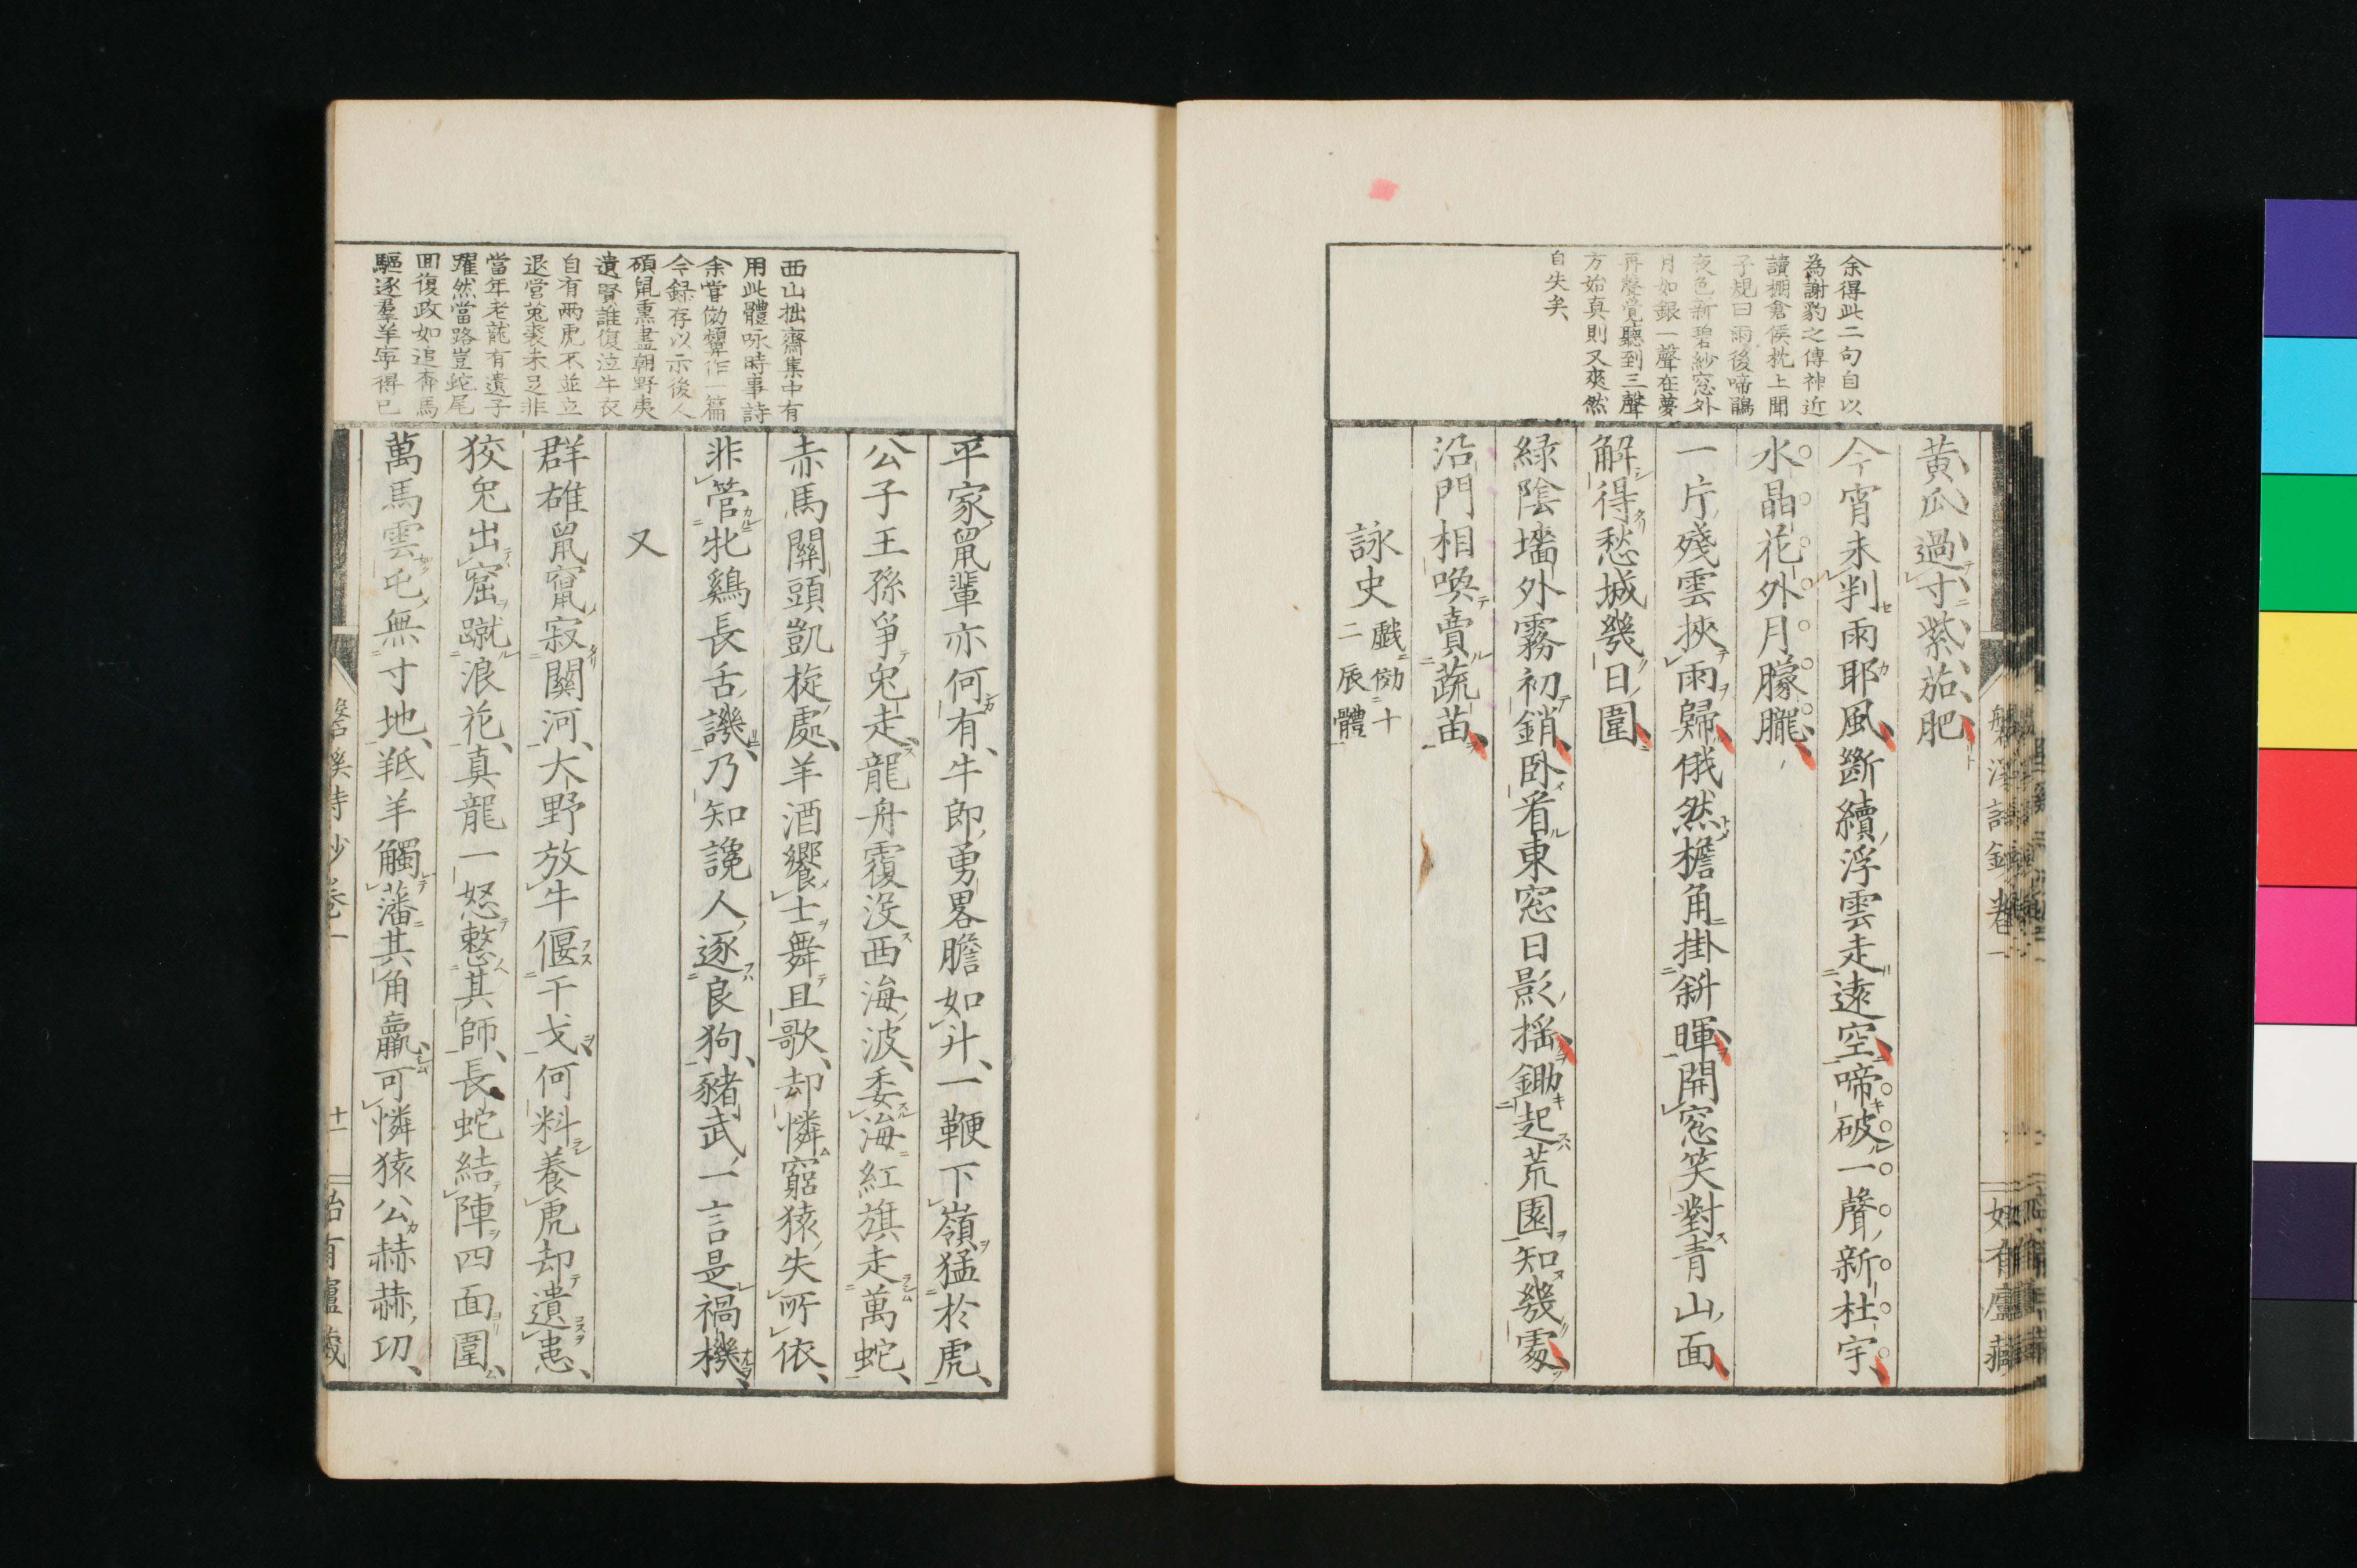 余得此二句自以
為謝豹之傳神近
讀棚倉侯枕上聞
子規曰雨後啼鵑
夜色新碧紗窓外
月如銀一聲在夢
再聲覚聽到三聲
方始真則又爽然
自失矣、
黄瓜過寸紫茄肥
今宵未判雨耶風斷續浮雲走遠空啼破一聲新杜宇
水晶花外月朦朧
一片殘雲挾雨歸俄然檐角掛斜暉開窓笑對青山面
解得愁城幾日圍
緑陰墻外霧初銷卧看東窓日影揺鋤起荒園知幾處
沿門相喚賣蔬苗
詠史戯倣十二辰體
西山拙齋集中有
用此體咏時事詩
余嘗倣顰作一篇
今録存以示後人
碩鼠熏盡朝野夷
遺賢誰復泣牛衣
自有兩虎不並立
退営菟裘未足非
當年老龍有遺子
躍然當路豈蛇尾
回復政如追奔馬
驅逐羣羊寧得已
平家鼠輩亦何有牛郎勇畧膽如升一鞭下嶺猛於虎
公子王孫爭兔走龍舟覆没西海波委海紅旗走萬蛇
赤馬關頭凱旋處羊酒饗士舞且歌却憐窮猿失所依
非管牝鷄長舌譏乃知讒人逐良狗豬武一言是禍機
又
群雄鼠竄寂關河大野放牛偃干戈何料養虎却遺患
狡兔出窟蹴浪花真龍一怒整其師長蛇結陣四面圍
萬馬雲屯無寸地羝羊觸藩其角羸可憐猿公赫赫功
十一